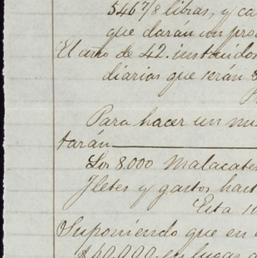 $46 7/8 libras, y ca
que darán un pro
El año de 42. instruidos
diarias que serán
Para hacer un mi
tarán
Los 8.000 Malacates
Fletes y gastos hast
Esta 10
Suponiendo que en
$60.000 en lugar d